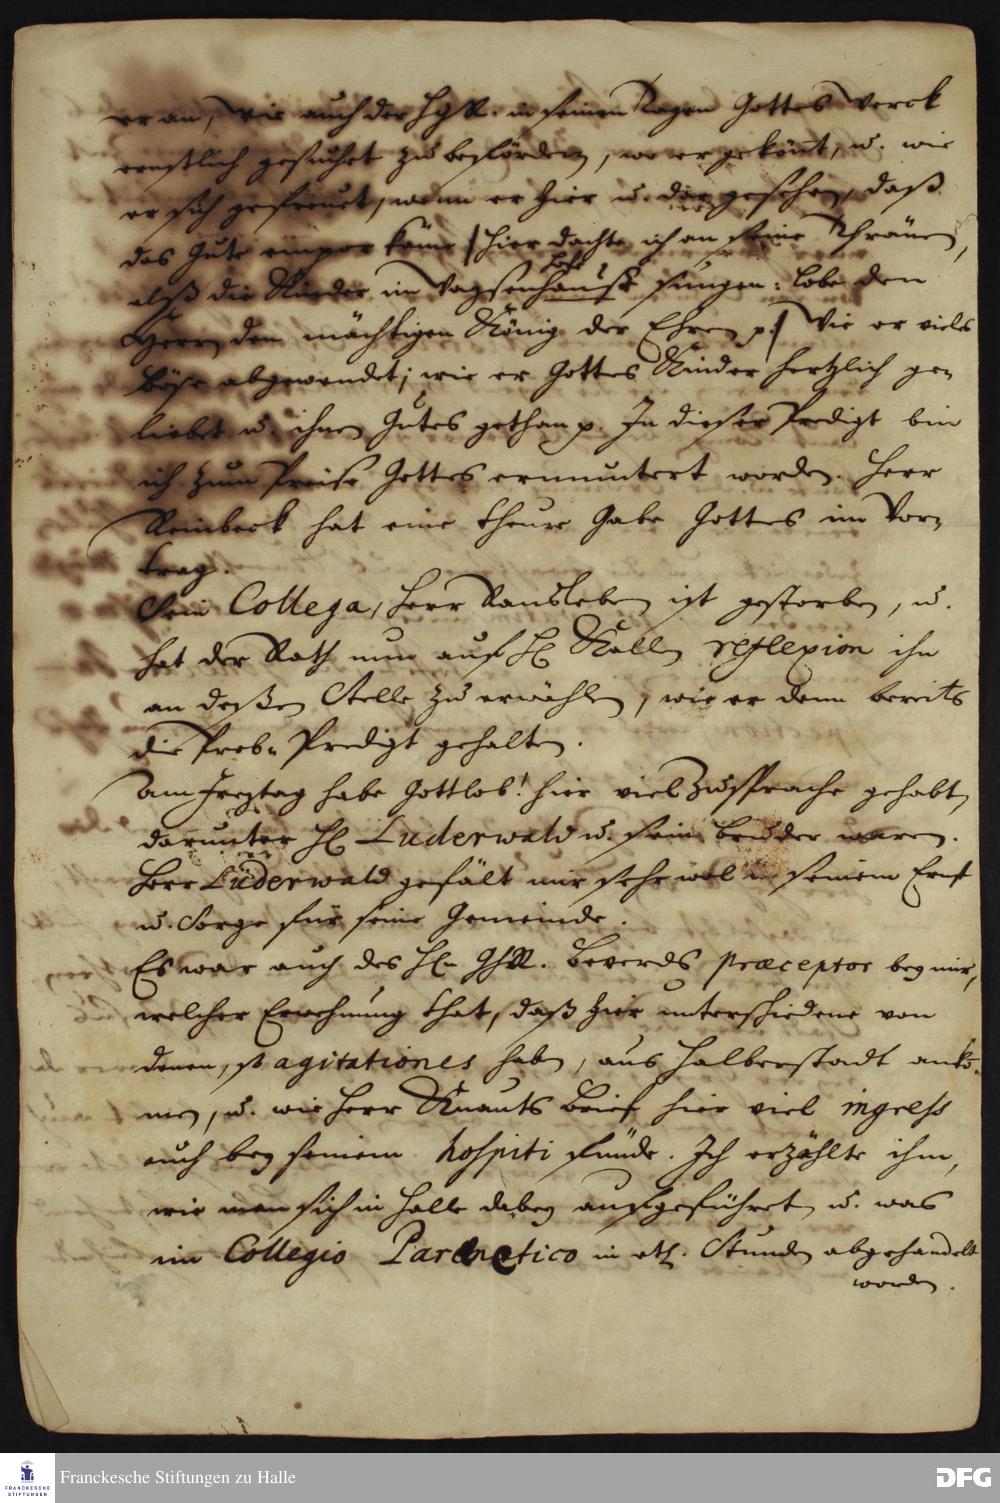 er an, wie auch der HgR. in seinen Tagen Gottes Werck
ernstlich gesuchet zu befördern, wo er gekönt, u. wie
er sich gefreuet, wenn er hier u. da gesehen, daß
das Gute empor käme / hier dachte ich an seine Thränen,
alß die Kinder im Waysenhause sungen: Lobe den
Herrn den mächtigen König der Ehren p. / Wie er vieles
Böse abgewendet; wie er Gottes Kinder hertzlich ge-
liebet u. ihnen Gutes gethan p. In dieser Predigt bin
ich zum Preise Gottes ermuntert worden. Herr
Reinbeck hat eine theure Gabe Gottes im Vor-
trag.
Sein Collega, Herr Rausleben ist gestorben, u.
hat der Rath nun auf H. reflexion ihn
an deßen Stelle zu erwählen, wie er denn bereits
die Prob-Predigt gehalten.
Am Freytag habe Gottlob! hier viel Zusprache gehabt,
darunter H. Luderwald u. sein Bruder waren.
Herr Luderwald gefält mir sehr wol in seinem Ernst
u. Sorge für seine Gemeinde.
Es war auch des H. GhR. Beverds Præceptor bey mir,
welcher Erwehnung that, daß hier unterschiedene von
denen, so agitationes haben, aus Halberstadt ankö-
men, u. wie Herr Knauts Brief hier viel ingreß
auch bey seinem hospiti fünde. Ich erzählte ihm,
wie man sich in Halle dabey aufgeführet, u. was
im Collegio Parænetico in etl. Stunden abgehandelt
worden.
Franckesche Stiftungen zu Halle
FRANCKESCHE
STIFTUNGEN
DFG